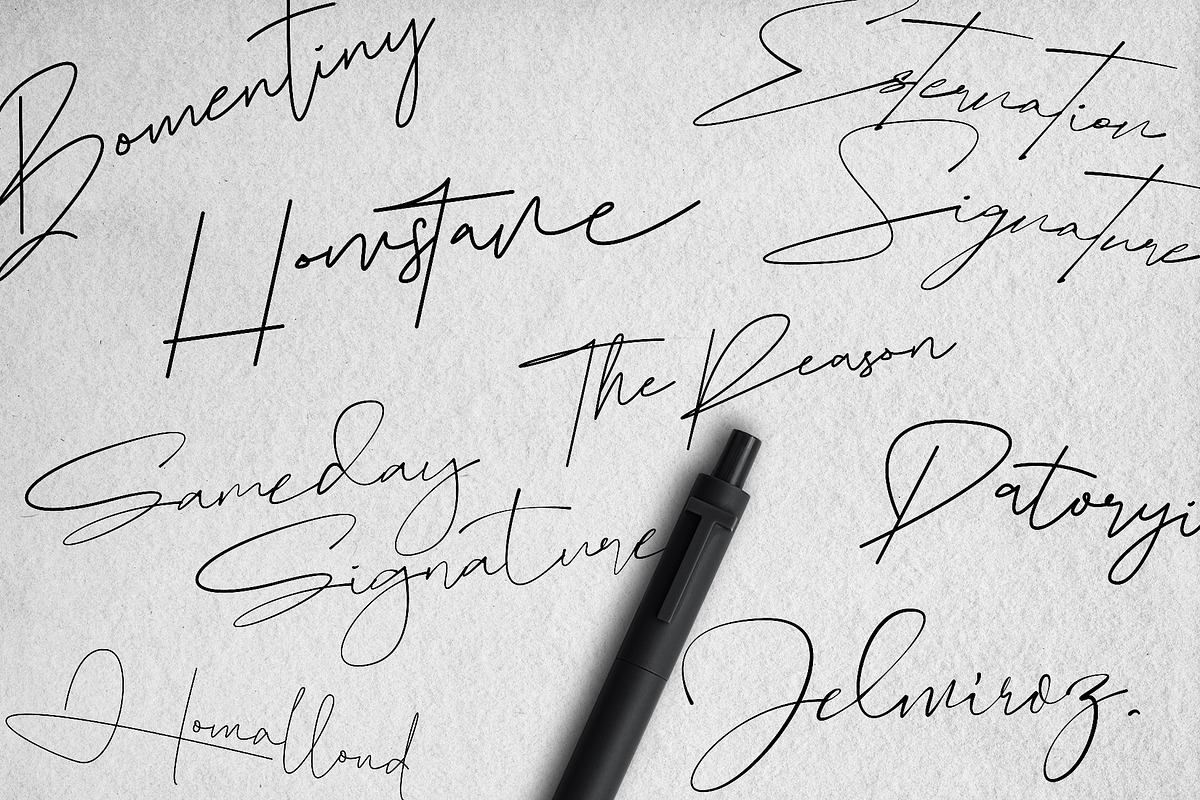 Bomentiny
Esternation
Signature
Homstane
The Reason
Sameday
Signature
Patoryi
Jelmiroz.
Homalloud